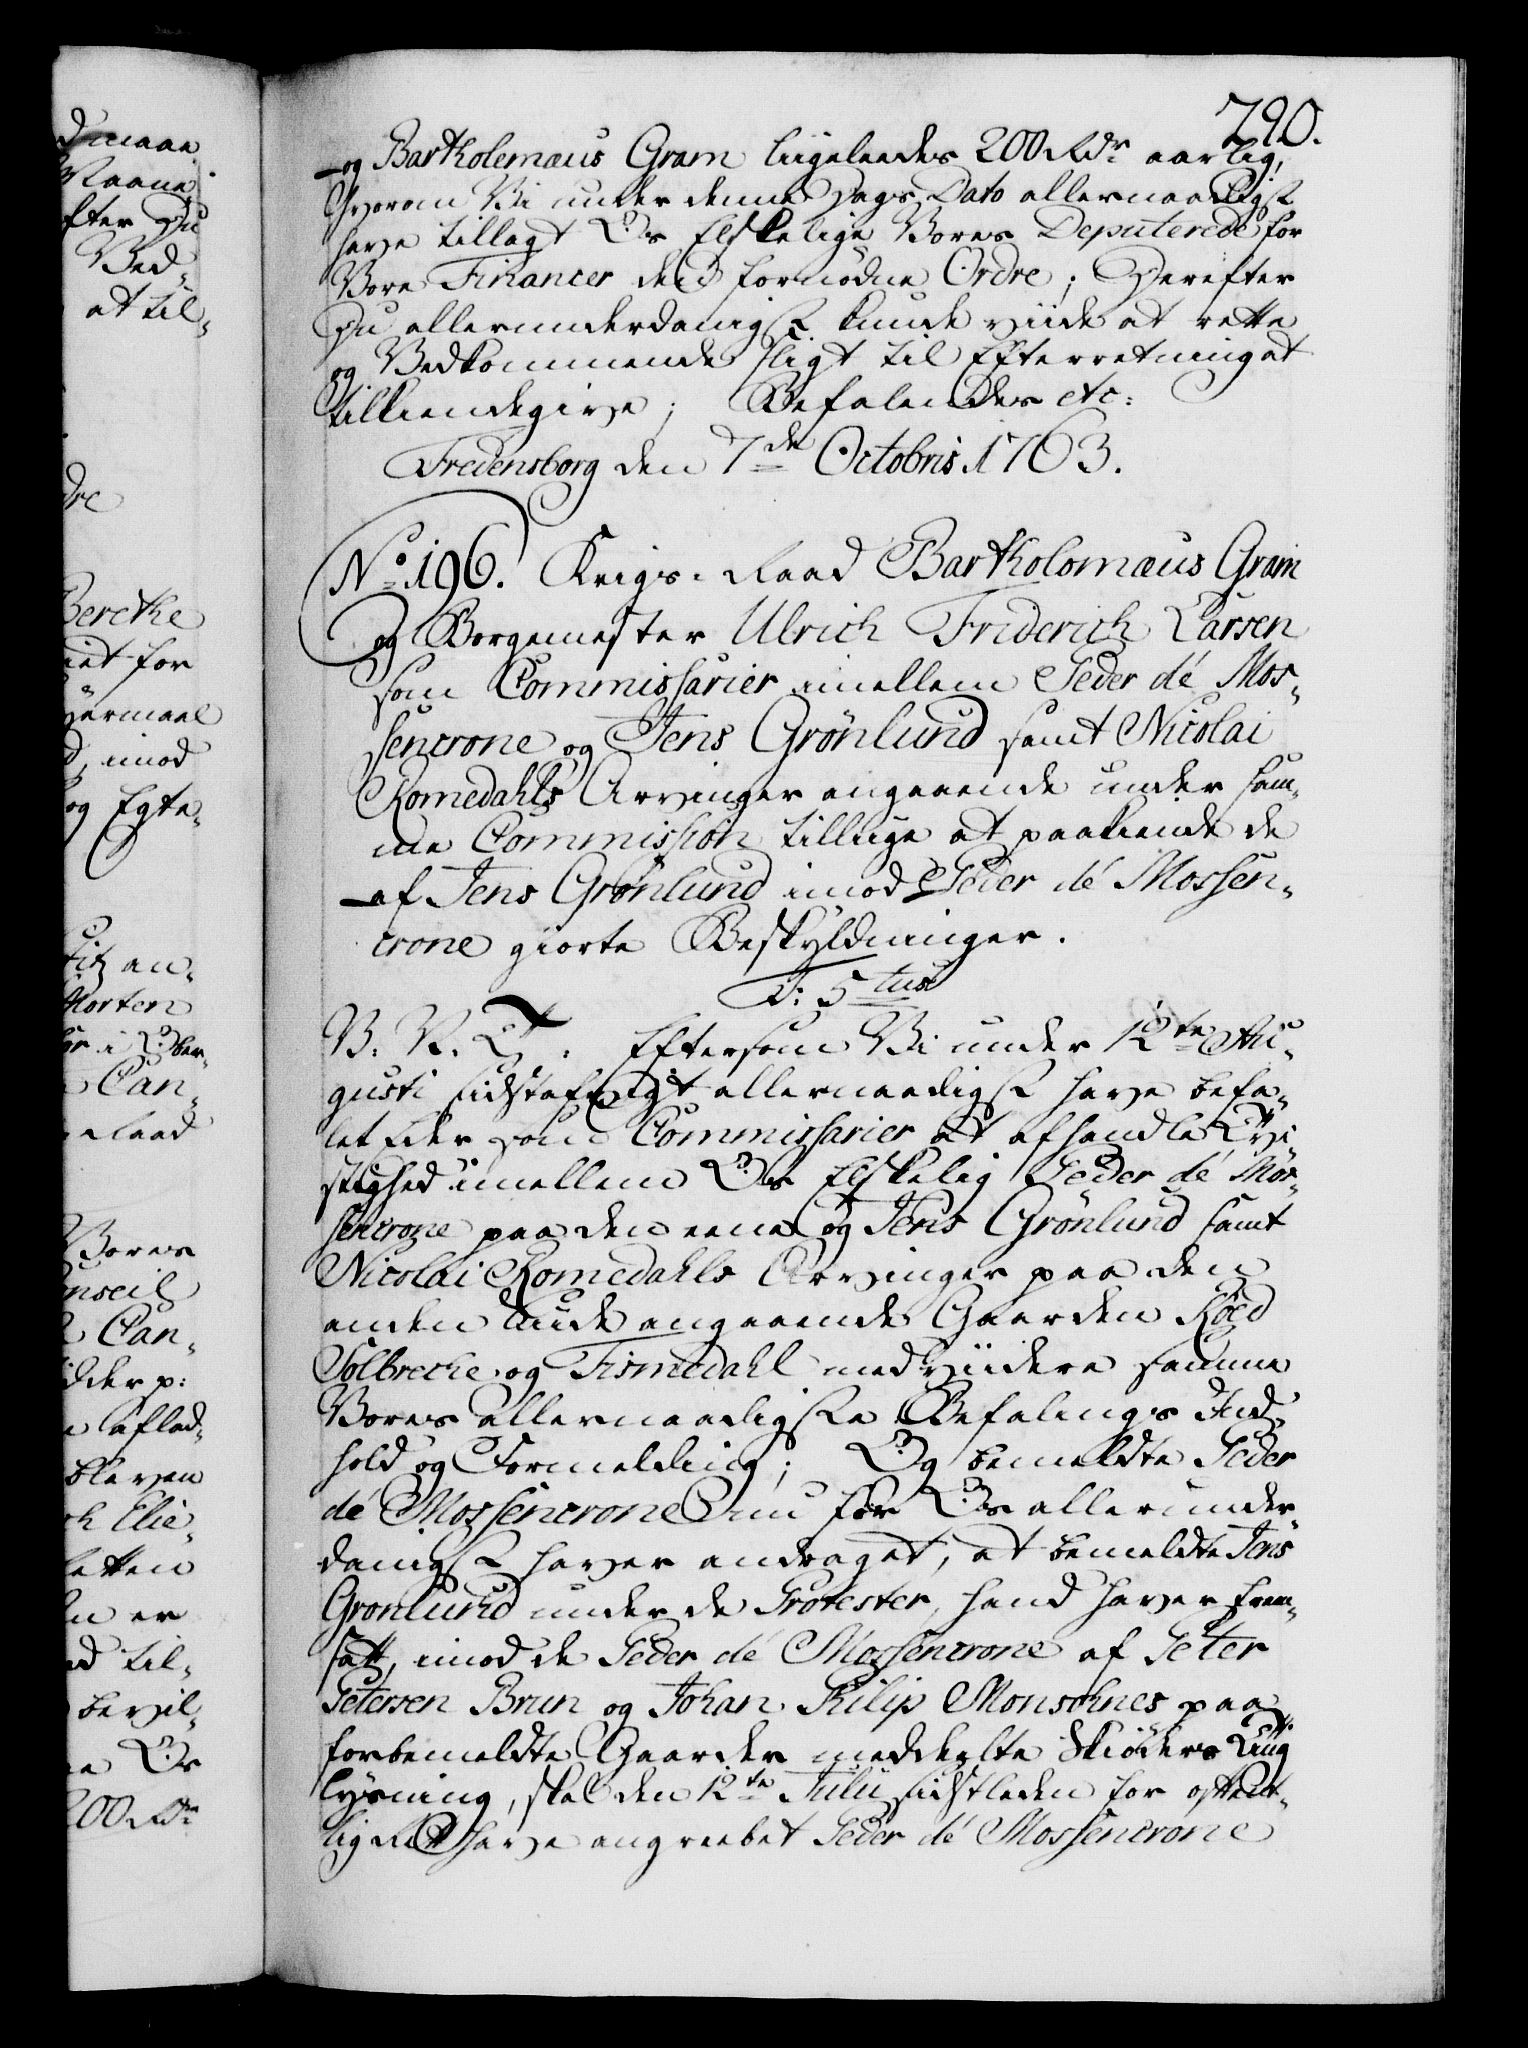 790.
og Bartholemæus Gram liigeleedes 200 Rdr aarlig,
hvorom Vi under denne Dags Dato allernaadigst
have tillagt Os Elskelige Vores Deputerede for
Vore Financer den fornødne Ordre; Derefter
Du allerunderdanigst kunde viide at rette
og Vedkommende sligt til Efterretning at
tilkiendegive; Befalendes etc:
Fredensborg den 7de Octobris 1763.
No. 196. Krigs-Raad Bartholomæus Gram
og Borgemester Ulrich Friderich Larsen
som Commissarier imellem Peder dé Mos-
sencrone og Jens Grønlund samt Nicolai
Romedahls Arvinger angaaende under sam-
me Commission tilliige at paakiende de
af Jens Grønlund imod Peder dé Mossen-
crone giorte Beskyldninger.
F: 5tus
V. V. G. T. Eftersom Vi under 12te Au-
gusti sidstafvigt allernaadigst have befa-
let Eder som Commissarier at afhandle Tvi
stighed imellem Os Elskelig Peder dé Mos-
sencrone paa den eene og Jens Grønlund samt
Nicolai Romedahls Arvinger paa den
anden Siide angaaende Gaarden Røed
Solbrecke og Tismedahl med viidere samme
Vores allernaadigste Befalings Ind-
hold og Formelding; Og bemeldte Peder
dé Mossencrone nu for Os allerunder-
danigst haver andraget, at bemeldte Jens
Grønlund under de Protester, hand haver frem-
satt, imod de Peder dé Mossencrone af Peter
Petersen Brun og Johan Philip Monsohnes paa
forbemeldte Gaarder meddeelte Skiøders Ting
lysning, skal den 12te Julii sidstleden for offent-
lig Ret have angreebet Peder dé Mossencrone